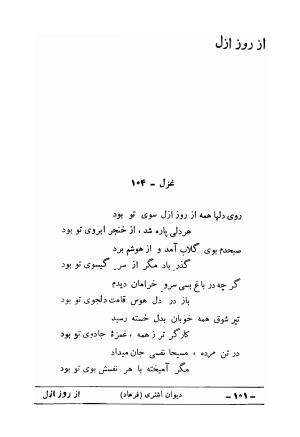 از روز ازل
غزل - ۱۰۴
روی دلها همه از روز ازل سوی تو بود
هر دلی پاره شد ، از خنجر ابروی تو بود
صبحدم بوی گلاب آمد و از هوشم برد
گذر باد مگر از سر گیسوی تو بود
گر چه در باغ بسی سرو خرامان دیدم
باز در دل هوس قامت دلجوی تو بود
تیر شوق همه خوبان بدل خسته رسید
کارگر تر ز همه ، غمزهٔ جادوی تو بود
در تن مرده ، مسیحا نفسی جان میداد
مگر آمیخته با هر نفسش بوی تو بود
- ۱۰۱ - دیوان اشتری (فرهاد) از روز ازل